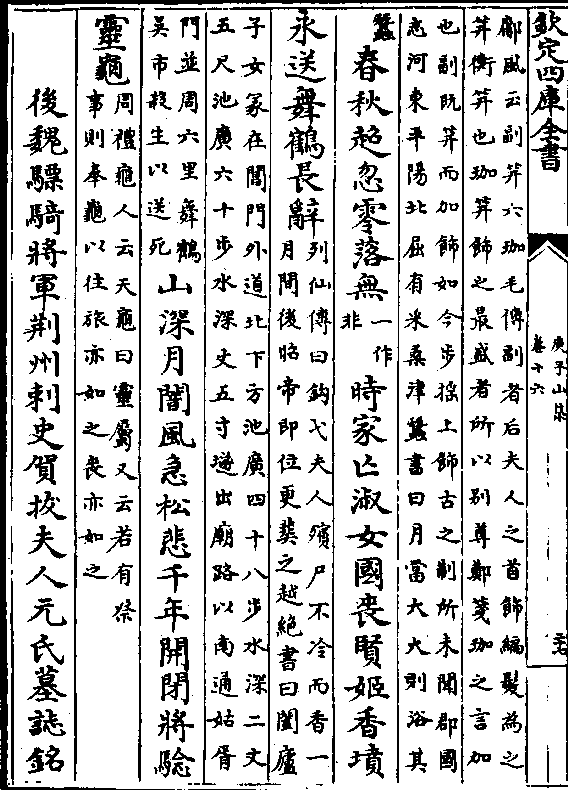 欽定四庫全書
庾子山集
卷十六
鄘風云副笄六珈毛傳副者后夫人之首飾編髮為之
笄衡笄也珈笄飾之最盛者所以别尊鄭箋珈之言加
也副既笄而加飾如今步揺上飾古之制所未聞郡國
志河東平陽北屈有采桑津蠶書曰月當大大則浴其
蠶春秋超忽零落無一作非時家亡淑女國喪賢姬香墳
永送舞鶴長辭列仙傳曰鈎弋夫人殯尸不冷而香一
月間後昭帝即位更葬之越絶書曰闔廬
子女冢在閶門外道北下方池廣四十八步水深二丈
五尺池廣六十步水深丈五寸遂出廟路以南通姑胥
門並周六里舞鶴
吴市殺生以送死山深月闇風急松悲千年開閉將驗
靈龜周禮龜人云天龜曰靈屬又云若有祭
事則奉龜以往旅亦如之喪亦如之
後魏驃騎將軍荆州刺史賀拔夫人元氏墓誌銘